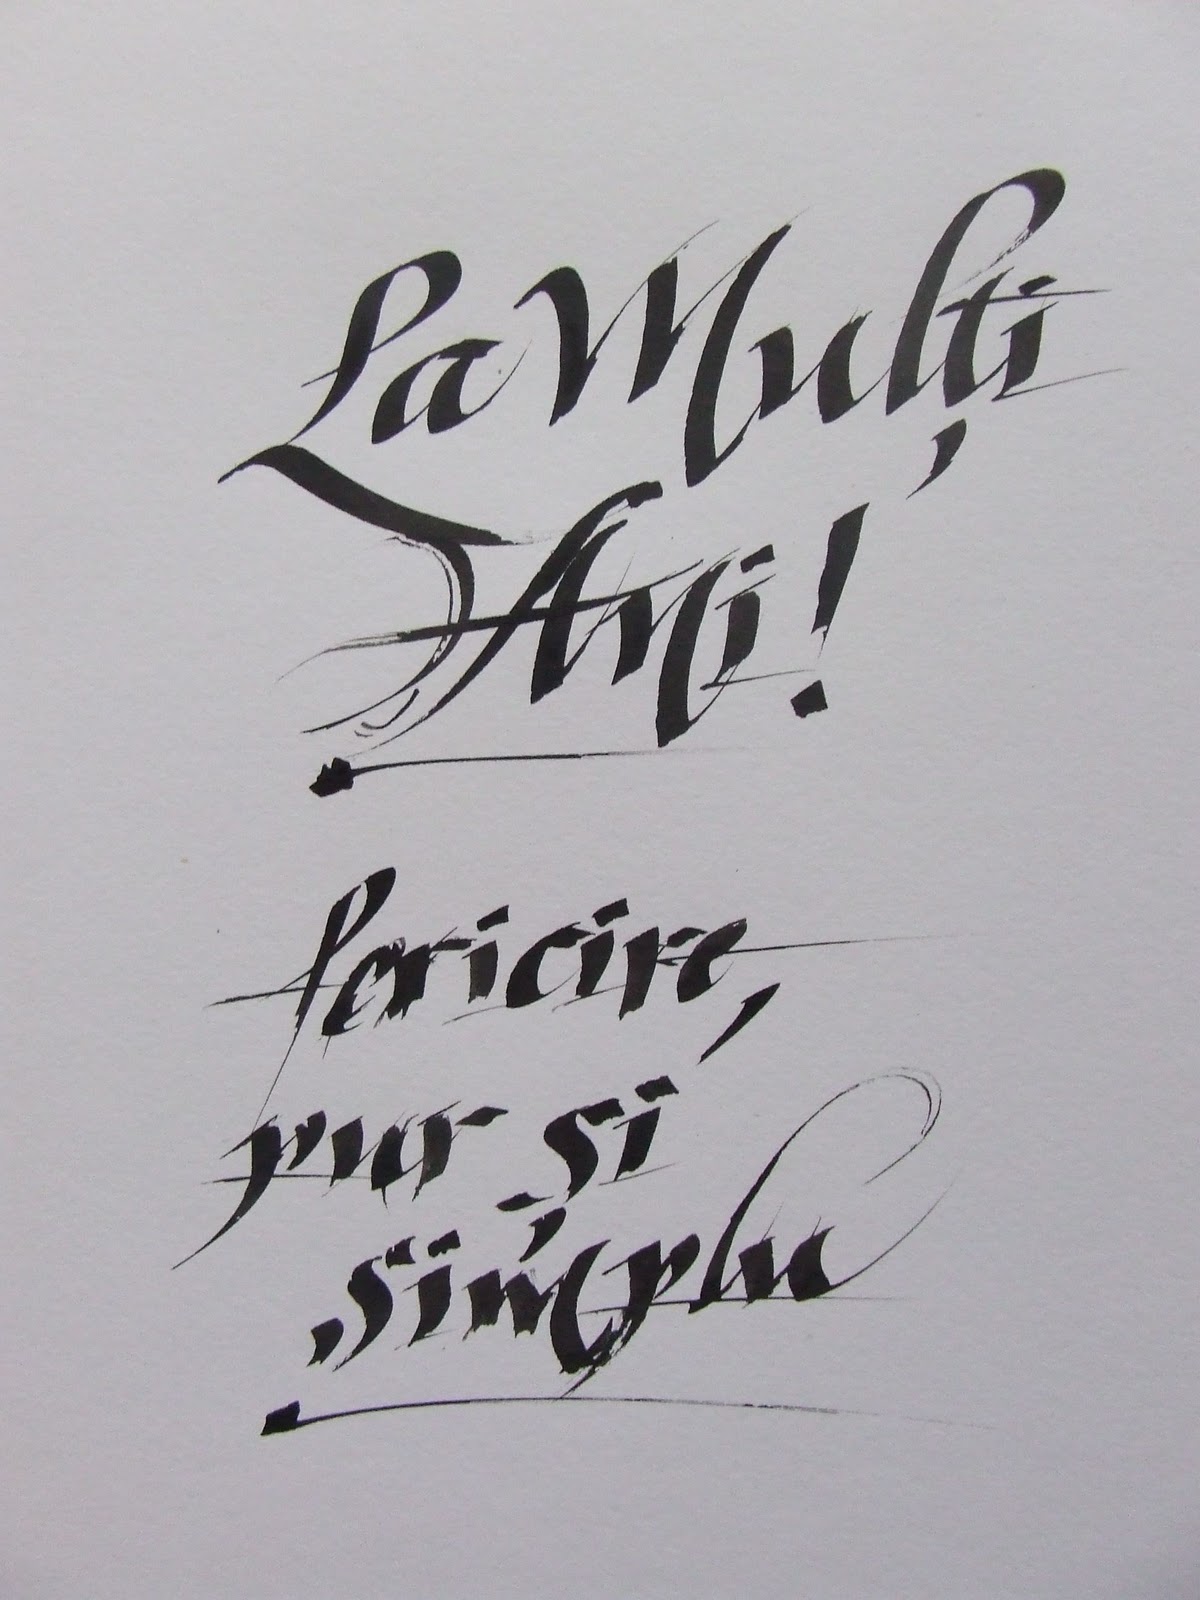 La Mulți
Ani!
fericire,
pur și
simplu